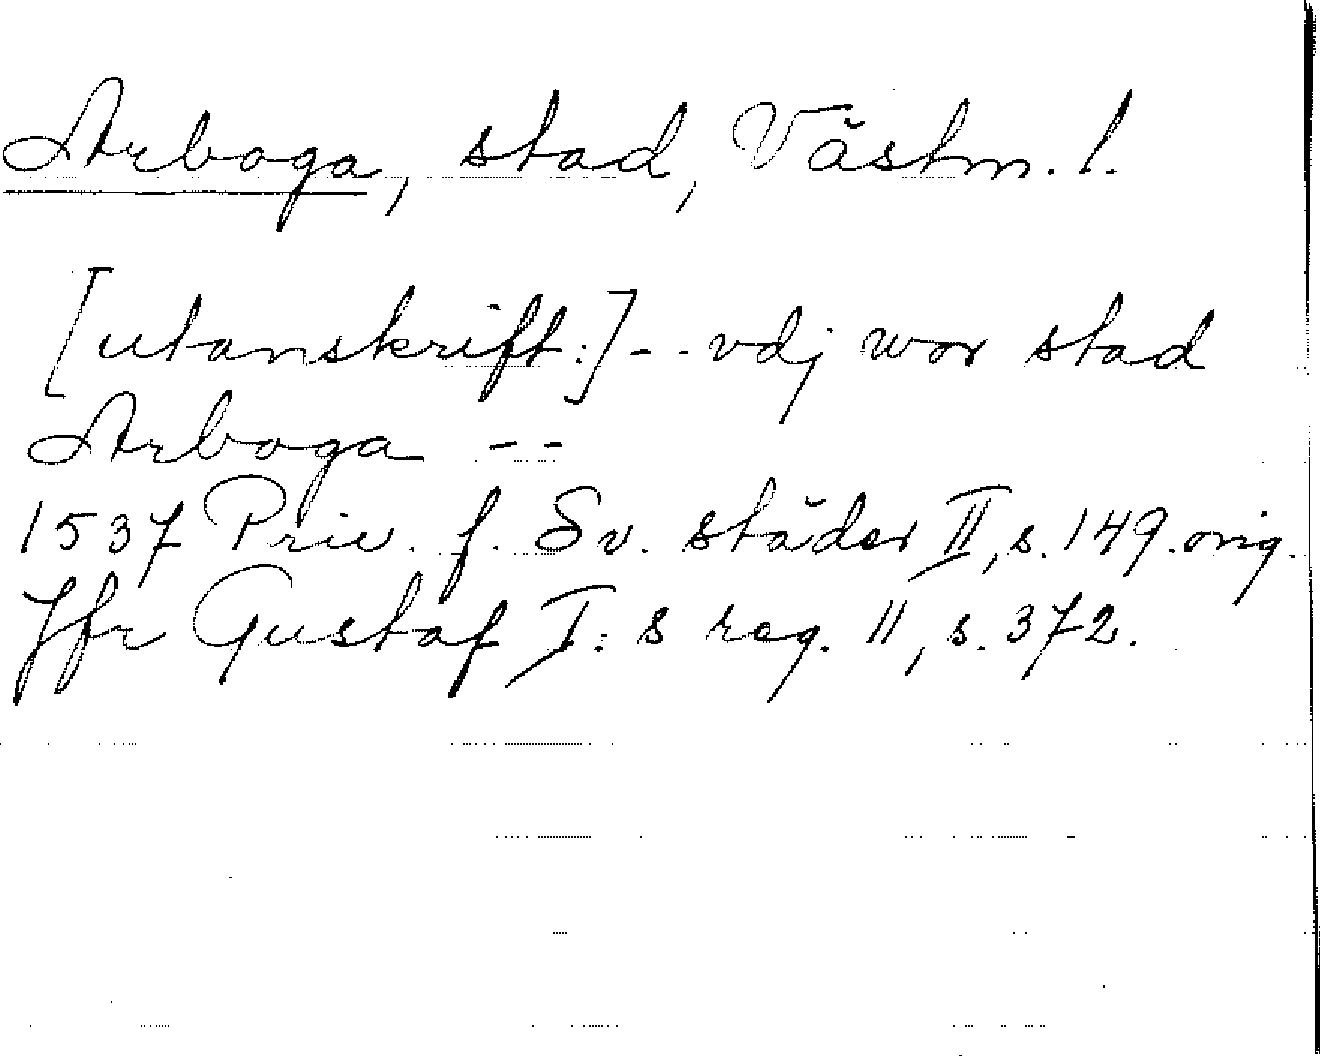 Arboga, stad, Västm. l.
[utanskrift:] - - vdj wor stad
Arboga - -
1537 Priv. f. Sv. städer II, s. 149. orig.
Jfr Gustaf I:s reg. 11, s. 372.